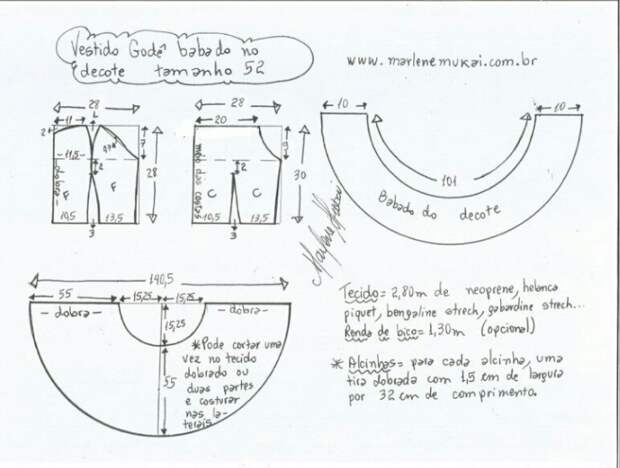 Vestido Godê babado no
decote tamanho 52
www.marlenemukai.com.br
28
11
2
7
11,5
2
28
dobra
F
F
10,5
13,5
3
28
20
meio das costas
2
30
C
C
10,5
13,5
3
Marlene Mukai
10
10
101
Babado do decote
140,5
55
15,25
15,25
- dobra -
- dobra -
15,25
55
*Pode cortar uma
vez no tecido
dobrado ou
duas partes
e costurar
nas la-
terais
Tecido = 2,80m de neoprene, helanca
piquet, bengaline strech, gabardine strech...
Renda de bico = 1,30m (opcional)
* Alcinhas = para cada alcinha, uma
tira dobrada com 1,5 cm de largura
por 32 cm de comprimento.